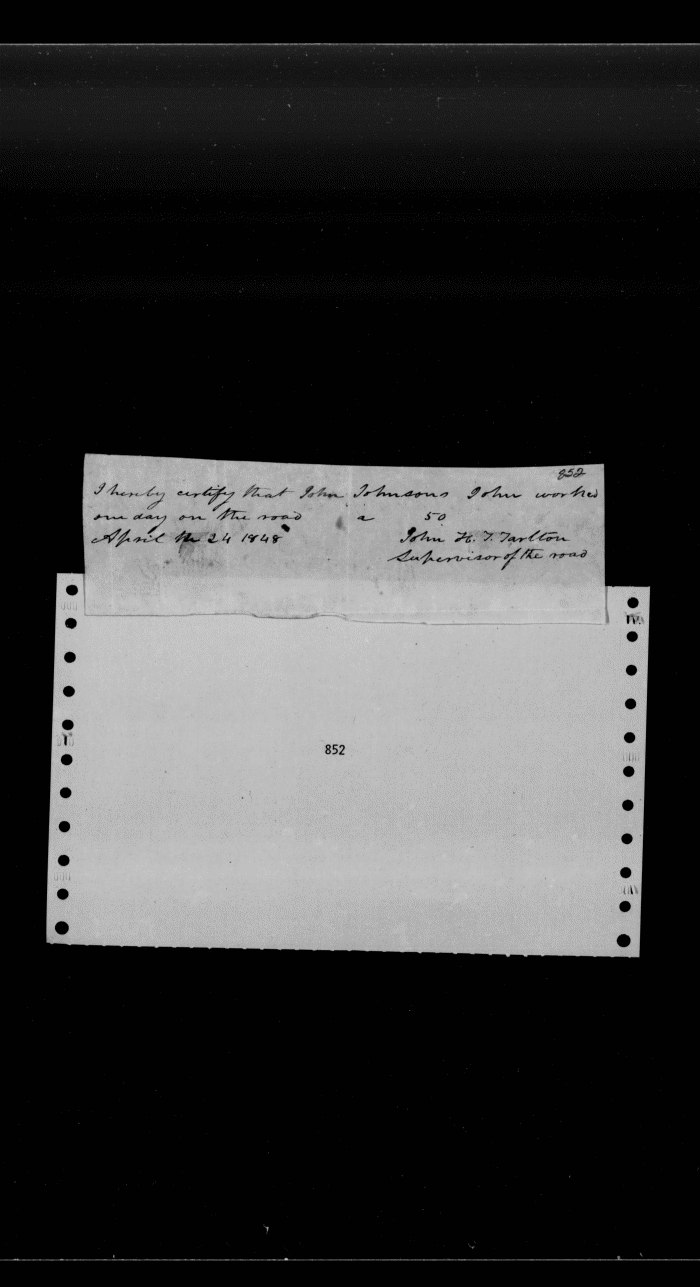 852
I hereby certify that John Johnsons John worked
one day on the road a 50
April the 24 1848 John H. T. Tarlton
Supervisor of the road
852